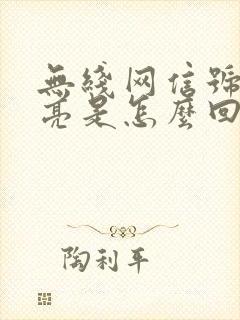 無綫网信號
亮是怎麽回
陶利平